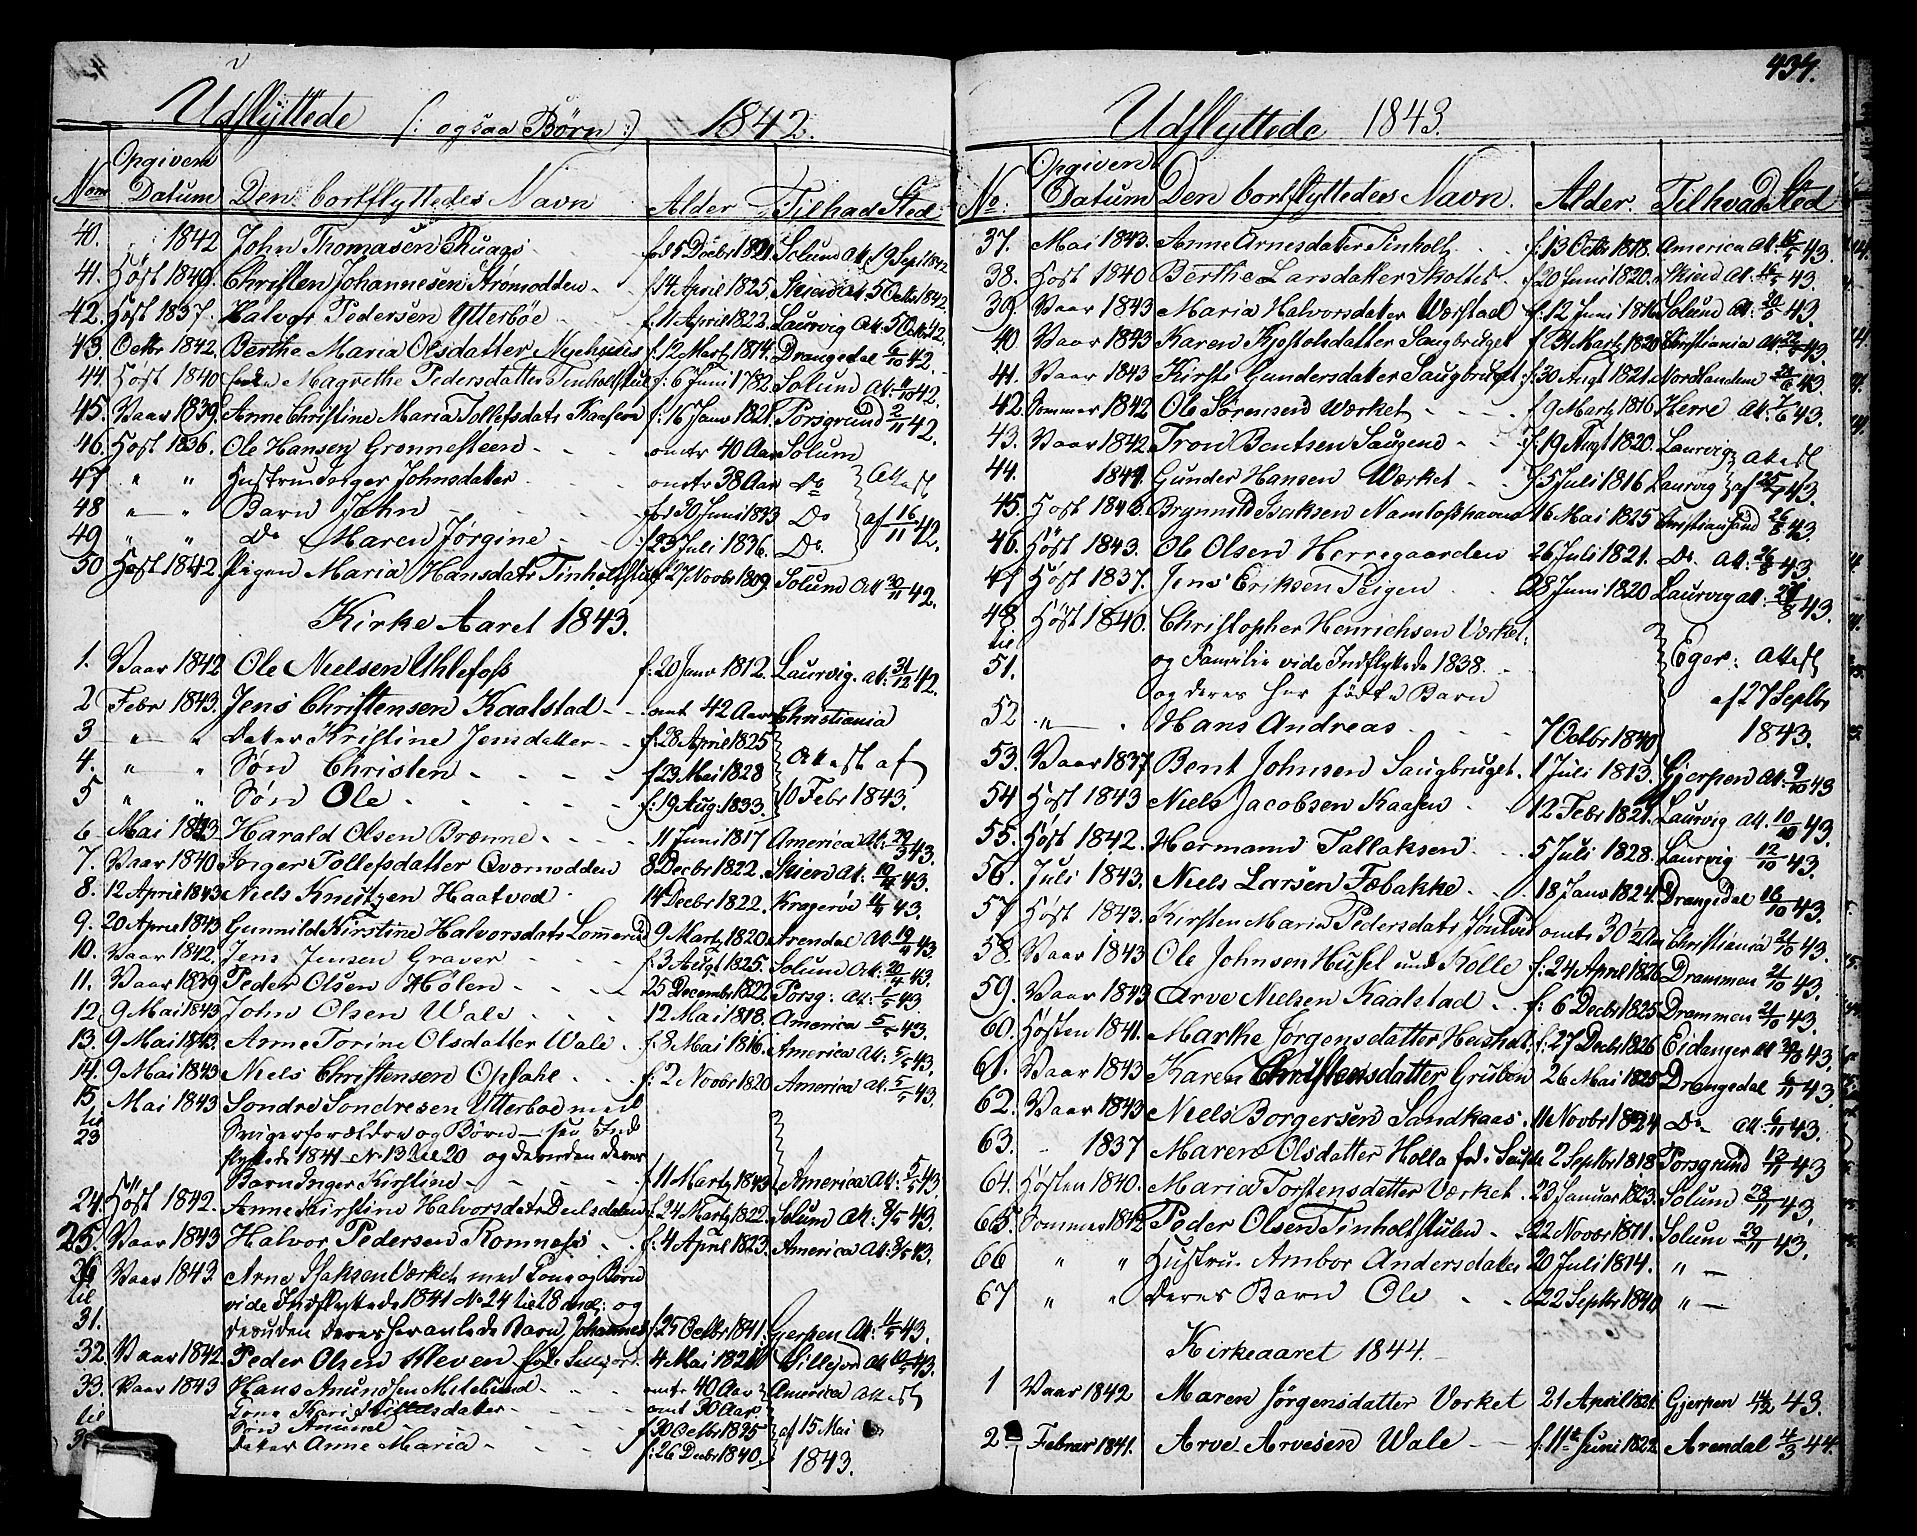 Udflyttede (: ogsaa Børn :) 1842.
Nom Opgiven Datum Den bortflyttedes Navn Alder Tilhvad Sted
40. " 1842 John Thomasen Ruags f: 5 Decbr 1821 Solum At: 19 Sept 1842
41. Høst 1840. Christen Johannesen Strømodden - - f 14 April 1825. Skien At: 5 Octbr 1842.
42. Høst 1837. Halvor Pedersen Ytterbøe - - f: 11 April 1822. Laurvig At: 5 Octbr 42.
43. Octbr 1842. Berthe Maria Olsdatter Nyehuus f: 12 Martz 1814. Drangedal 6/10 42.
44. Høst 1840 Magrethe Pedersdatter Tinholtstul f: 6 Juni 1782. Solum At: 9/10 42.
45. Vaar 1839. Anne Christine Maria Tollefsdatr Kaasen f: 16 Janr 1821. Porsgrund 2/11 42.
46. Høst 1836. Ole Hansen Grønnesteen - - - omtr 40 Aar Solum
47 " " Hustru Inger Johnsdater - - - omtr 38 Aar Do } Attest
48 " — " Barn John - - - - - fød 30 Juni 1833 Do } af 16/11 42.
49 " " Do Maren Jørgine - - - f 23 Juli 1836. Do.
50 Høst 1842. Pigen Maria Hansdatr Tinholtstul f 27 Novbr 1809. Solum At: 30/11 42.
Kirke Aaret 1843.
1. Vaar 1842 Ole Nielsen Uhlefoss f: 20 Janr 1812. Laurvig. At: 31/12 42.
2 Febr 1843. Jens Christensen Kaalstad - - omt 42 Aar Christiania
3 " — " Datter Kristine Jensdatter - - f: 28 April 1825
4. " — " Søn Christen - - - - f 23 Mai 1828 Attest af
5 " " Søn Ole - - - - - f: 19 Aug: 1833. 10 Febr 1843.
6 Mai 1843 Harald Olsen Brænne - - - 11 Juni 1817 America At: 29/3 43.
7. Vaar 1840 Inger Tollefsdatter Qværnodden 8 Decbr 1822. Skien At: 10/4 43.
8. 12 April 1843 Niels Knutzen Haatved - 14 Decbr 1822. Kragerøe 11/4 43.
9. 20 April 1843 Gunnild Kirstine Halvorsdatr Lommerud 9 Martz 1820. Arendal At: 19/4 43.
10. Vaar 1842. Jens Jensen Graver - - - f: 3 Augt 1825. Solum At: 20/4 43.
11. Vaar 1839 Peder Olsen Hølen - - - - 25 Decembr 1822. Porsg: At: 1/5 43.
12 9 Mai 1843 John Olsen Wale - - - 12 Mai 1818. America 5/5 43.
13. 9 Mai 1843. Anne Torine Olsdatter Wale. f. 8 Mai 1816. America At: 5/5 43.
14. 9 Mai 1843 Niels Christensen Opsahl - - - f: 2 Novbr 1820 America At: 5/5 43.
15 Mai 1843 Sondre Sondresen Ytterboe med
til Svigerforældre og Børn — see Ind
23 flyttede 1841 No 13 til 20 og desuden deres
Barn Inger Kirstine - - - - f 11 Martz 1843 America At: 5/5 43
24. Høst 1842. Anne Kirstine Halvorsdatr Deelsdalen f: 24 Martz 1822. Solum At: 8/5 43.
25. Vaar 1843 Halvor Pedersen Romness - - f: 4 April 1823. America At: 8/5 43.
26 Vaar 1843. Arne Isaksen Værket med Kone og Børn
til vide Indflyttede 1841 No 24 til 28 incl: og
31. desuden deres her avlede Barn Johannes f 25 Octbr 1841. Gjerpen At: 11/5 43.
32. Vaar 1842. Peder Olsen Kleven 4 Mai 1821 At: 10/5 43.
33. Vaar 1843 Hans Anundsen Milebund - - - omtr 40 Aar America Attest
til Kone Kari - - - omt 30 Aar
Søn Anund - - - f 30 Octbr 1835 af 15 Mai
Dater Anne Maria - - - f: 26 Decbr 1840. 1843.
434.
Udflyttede 1843.
No. Opgiven Datum Den bortflyttedes Navn. Alder. Tilhvad Sted
37. Mai 1843. Anne Arnesdater Tinholt - f: 13 Octbr 1818. America At: 15/5 43.
38. Høst 1840 Berthe Larsdatter Skottet - f 20 Juni 1820. Skien At: 16/5 43.
39. Vaar 1843 Maria Halvorsdatter Værstad f: 12 Juni 1816 Solum At: 20/5 43.
40 Vaar 1843 Karen Kjøstolsdatter Saugbruget f 31 Martz 1820 Christiania At: 22/5 43.
41. Vaar 1843 Kirste Gundersdater Saugbruget f 30 Augt 1821 Nordlandene 21/6 43.
42. Sommer 1842 Ole Sørensen Værket - - - - f 9 Martz 1816. Herre At: 7/6 43.
43. Vaar 1842 Tron Bentsen Saugene - - f: 19 Augt 1820. Laurvig } Attest
44. 1841. Gunder Hansen Værket - - f 5 Juli 1816 Laurvig } af 25/7 43.
45. Høst 1843. Brynnild Isaksen Namløshavne 16 Mai 1825 Christiansund 26/8 43.
46. Høst 1843. Ole Olsen Herregaarden 26 Juli 1821. Do. At: 26/8 43.
47 Høst 1837. Jens Eriksen Teigen - - 28 Juni 1820 Laurvig At: 28/8 43.
48 Høst 1840. Christopher Henrichsen Værket.
til og Familie vide Indflyttede 1838. - Eger: Attest
51. og deres her fødte Barn af 27 Septbr
52 " — " Hans Andreas - - - - 7 Octbr 1840 1843.
53. Vaar 1837 Bent Johnsen Saugbruget. 1 Juli 1813. Gjerpen At: 9/10 43
54 Høst 1843 Niels Jacobsen Kaasen - - 12 Febr 1821. Laurvig At. 10/10 43.
55. Høst 1842. Hermann Tallaksen - - - 5 Juli 1828. Laurvig 12/10 43.
56. Juli 1843. Niels Larsen Fæbakke - - 18 Janr 1824. Drangedal 16/10 43.
57 Høst 1843. Kirsten Maria Pedersdatr Jøntvet omtr 30 1/2 Aar Christiania 21/10 43.
58. Vaar 1843 Ole Johnsen Husel und Kolle f: 24 April 1826 Drammen 21/10 43.
59. Vaar 1843 Arve Nielsen Kaalstad - - f: 6 Decbr 1825 Drammen 21/10 43.
60. Høsten 1841. Marthe Jørgensdatter Hesholt. f: 27 Decbr 1826 Eidanger At 30/10 43.
61. Vaar 1843 Karen Christensdatter Grubon 26 Mai 1825 Drangedal 6/11 43.
62. Vaar 1843 Niels Borgersen Sandkaas. 11 Novbr 1824 Do — At: 6/11 43.
63. " 1837 Maren Olsdatter Holla 2 Septbr 1818 Porsgrund 13/11 43
64. Høsten 1840. Maria Torstensdatter Værket. 23 Januar 1823. Solum 28/11 43.
65. Sommer 1842 Peder Olsen Tinholtstulen - 22 Novbr 1811. Solum 29/11 43.
66 " " Hustru. Ambor Andersdater 20 Juli 1814. " —
67 " " Deres Barn Ole - - 22 Septbr 1840 " —
Kirkeaaret 1844.
1 Vaar 1842 Maren Jørgensdatter Værket 21 April 1821. Gjerpen 14/2 43.
2. Februar 1841. Arve Arvesen Wale - f: 11te Juni 1822. Arendal 4/3 44.